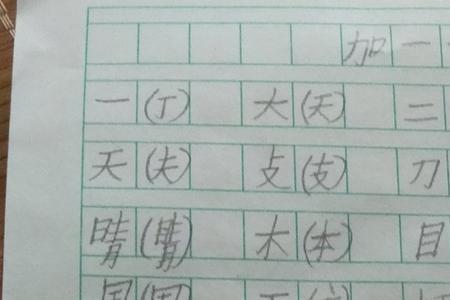 加一
一(丁) 大(天) 二
天(夫) 攴(支) 刀
晴(睛) 木(本) 目